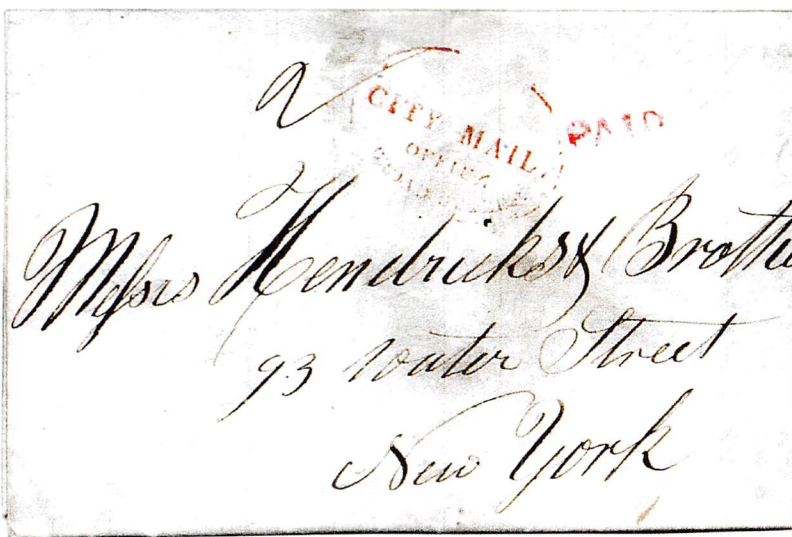 2
CITY MAIL
OFFICE
PAID
Messrs Hendricks & Brothe
93 Water Street
New York